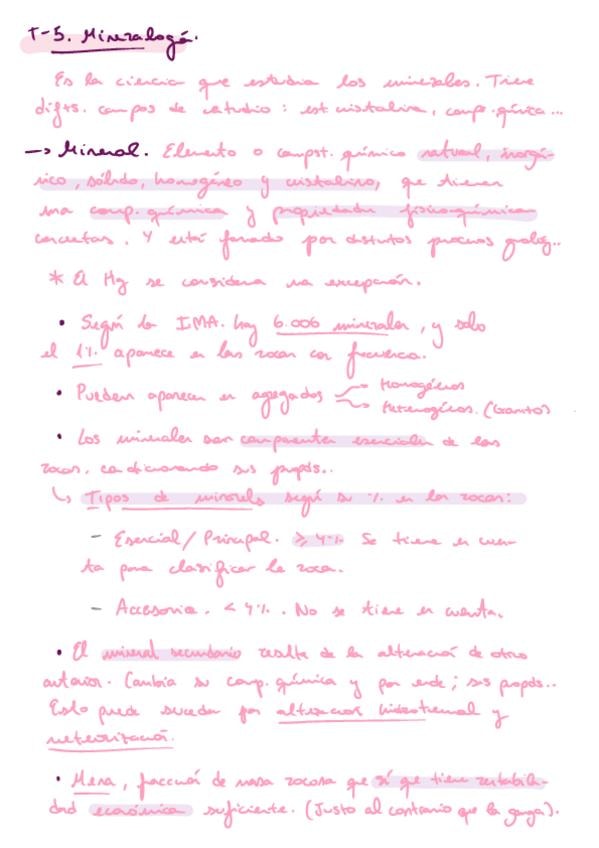 T-5. Mineralogía.
Es la ciencia que estudia los minerales. Tiene
difts. campos de estudio : est cristalina, comp. química ...
→ Mineral. Elemento o compst. químico natural, inorgá-
nico, sólido, homogéneo y cristalino, que tienen
una comp. química y propiedades fisicoquímicas
concretas. Y está formado por distintos procesos geológ..
* El Hg se considera una excepción.
• Según la IMA. hay 6.006 minerales, y solo
el 1%. aparece en las rocas con frecuencia.
• Pueden aparecer en agregados Homogéneos
Heterogéneos. (Granito)
• Los minerales son componentes esenciales de las
rocas, condicionando sus propds..
↳ Tipos de minerals según su % en las rocas:
- Esencial/Principal. ≥ 4%. Se tiene en cuen-
ta para clasificar la roca.
- Accesorio. < 4%. No se tiene en cuenta.
• El mineral secundario resulta de la alteración de otro
anterior. Cambia su comp. química y por ende; sus propds..
Esto puede suceder por alteración hidrotermal y
meteorización.
• Mena, fracción de masa rocosa que sí que tiene rentabili-
dad económica suficiente. (Justo al contrario que la ganga).